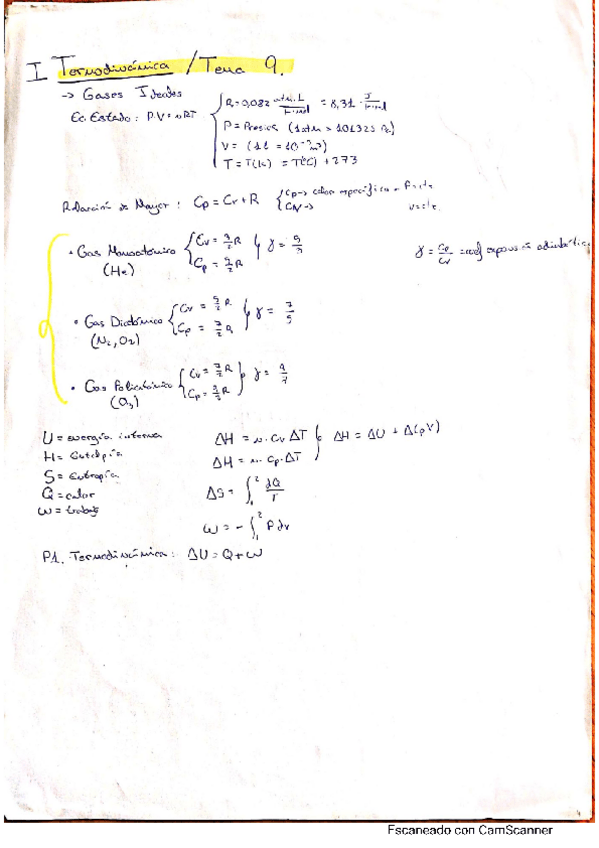 I Termodinámica / Tema 9.
→ Gases Ideales
Ec. Estado: P·V = nRT
R = 0,082 atm·L/K·mol = 8,31 J/K·mol
P = Presión (1 atm = 101325 Pa)
V = (1L = 10⁻³ m³)
T = T(K) = T(ºC) + 273
Relación de Mayer: Cp = Cv + R
Cp → calor específico a P = cte
CN → v = cte.
• Gas Monoatómico (He)
Cv = 3/2 R
Cp = 5/2 R
γ = 5/3
γ = Cp/Cv = coef expansión adiabática
• Gas Diatómico (N₂, O₂)
Cv = 5/2 R
Cp = 7/2 R
γ = 7/5
• Gas Poliatómico (O₃)
Cv = 7/2 R
Cp = 9/2 R
γ = 9/7
U = energía interna
H = Entalpía
S = Entropía
Q = calor
W = trabajo
ΔH = n·Cv ΔT
ΔH = n·Cp·ΔT
ΔH = ΔU + Δ(pV)
ΔS = ∫₁² dQ/T
W = -∫₁² P dv
P1. Termodinámica: ΔU = Q + W
Escaneado con CamScanner